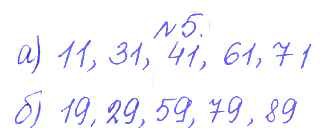 №5.
а) 11, 31, 41, 61, 71
б) 19, 29, 59, 79, 89